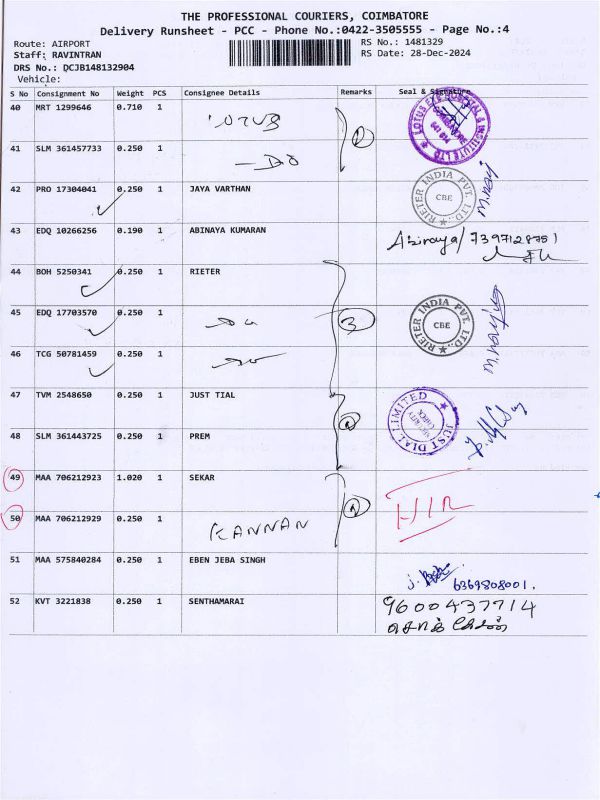 THE PROFESSIONAL COURIERS, COIMBATORE
Delivery Runsheet - PCC - Phone No.:0422-3505555 - Page No.:4
Route: AIRPORT
Staff: RAVINTRAN
DRS No.: DCJB148132904
Vehicle:
RS No.: 1481329
RS Date: 28-Dec-2024
S No Consignment No Weight PCS Consignee Details Remarks Seal & Signature
40 MRT 1299646 0.710 1
LOTUS EYE HOSPITAL & INSTITUTE LTD
41 SLM 361457733 0.250 1 —DO
42 PRO 17304041 0.250 1 JAYA VARTHAN
RIETER INDIA PVT. LTD., CBE
43 EDQ 10266256 0.190 1 ABINAYA KUMARAN Abinaya/7397128751
44 BOH 5250341 0.250 1 RIETER
45 EDQ 17703570 0.250 1 3
RIETER INDIA PVT. LTD., CBE
46 TCG 50781459 0.250 1
47 TVM 2548650 0.250 1 JUST TIAL
JUST DIAL LIMITED SECURITY CHECK
48 SLM 361443725 0.250 1 PREM
49 MAA 706212923 1.020 1 SEKAR
50 MAA 706212929 0.250 1 KANNAN
51 MAA 575840284 0.250 1 EBEN JEBA SINGH 6369808001.
52 KVT 3221838 0.250 1 SENTHAMARAI 9600437714